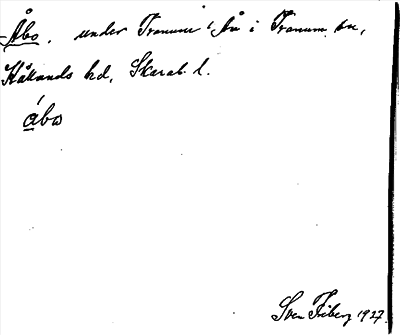 Åbo, under Tranum i Tranum sn,
Kållands hd, Skarab. l.
åbω
Sven Friberg 1927.